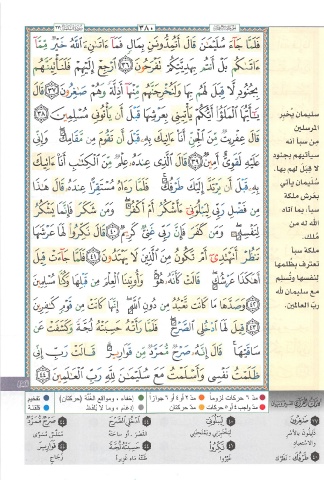 ٣٨٠
فَلَمَّا جَآءَ سُلَيْمَٰنَ قَالَ أَتُمِدُّونَنِ بِمَالٍ فَمَآ ءَاتَىٰنِۦَ ٱللَّهُ خَيْرٌ مِّمَّآ
ءَاتَىٰكُم بَلْ أَنتُم بِهَدِيَّتِكُمْ تَفْرَحُونَ ٣٦ ٱرْجِعْ إِلَيْهِمْ فَلَنَأْتِيَنَّهُم
بِجُنُودٍ لَّا قِبَلَ لَهُم بِهَا وَلَنُخْرِجَنَّهُم مِّنْهَآ أَذِلَّةً وَهُمْ صَٰغِرُونَ ٣٧ قَالَ
يَٰٓأَيُّهَا ٱلْمَلَؤُا۟ أَيُّكُمْ يَأْتِينِى بِعَرْشِهَا قَبْلَ أَن يَأْتُونِى مُسْلِمِينَ ٣٨
قَالَ عِفْرِيتٌ مِّنَ ٱلْجِنِّ أَنَا۠ ءَاتِيكَ بِهِۦ قَبْلَ أَن تَقُومَ مِن مَّقَامِكَ وَإِنِّى
عَلَيْهِ لَقَوِىٌّ أَمِينٌ ٣٩ قَالَ ٱلَّذِى عِندَهُۥ عِلْمٌ مِّنَ ٱلْكِتَٰبِ أَنَا۠ ءَاتِيكَ
بِهِۦ قَبْلَ أَن يَرْتَدَّ إِلَيْكَ طَرْفُكَ فَلَمَّا رَءَاهُ مُسْتَقِرًّا عِندَهُۥ قَالَ هَٰذَا
مِن فَضْلِ رَبِّى لِيَبْلُوَنِىٓ ءَأَشْكُرُ أَمْ أَكْفُرُ وَمَن شَكَرَ فَإِنَّمَا يَشْكُرُ
لِنَفْسِهِۦ وَمَن كَفَرَ فَإِنَّ رَبِّى غَنِىٌّ كَرِيمٌ ٤٠ قَالَ نَكِّرُوا۟ لَهَا عَرْشَهَا
نَنظُرْ أَتَهْتَدِىٓ أَمْ تَكُونُ مِنَ ٱلَّذِينَ لَا يَهْتَدُونَ ٤١ فَلَمَّا جَآءَتْ قِيلَ
أَهَٰكَذَا عَرْشُكِ قَالَتْ كَأَنَّهُۥ هُوَ وَأُوتِينَا ٱلْعِلْمَ مِن قَبْلِهَا وَكُنَّا مُسْلِمِينَ
٤٢ وَصَدَّهَا مَا كَانَت تَّعْبُدُ مِن دُونِ ٱللَّهِ إِنَّهَا كَانَتْ مِن قَوْمٍ كَٰفِرِينَ
٤٣ قِيلَ لَهَا ٱدْخُلِى ٱلصَّرْحَ فَلَمَّا رَأَتْهُ حَسِبَتْهُ لُجَّةً وَكَشَفَتْ عَن
سَاقَيْهَا قَالَ إِنَّهُۥ صَرْحٌ مُّمَرَّدٌ مِّن قَوَارِيرَ قَالَتْ رَبِّ إِنِّى
ظَلَمْتُ نَفْسِى وَأَسْلَمْتُ مَعَ سُلَيْمَٰنَ لِلَّهِ رَبِّ ٱلْعَٰلَمِينَ ٤٤
سليمان يُخبر
المرسلين
من سبأ أنه
سيأتيهم بجنود
لا قِبَل لهم بها.
سُليمان يأتي
بعرش ملكة
سبأ، بما آتاه
الله له من
مُلك.
ملكة سبأ
تعترف بظلمها
لنفسها وتُسلِم
مع سليمان لله
ربّ العالمين.
مدّ ٦ حركات لزوماً
مدّ ٢ أو ٤ أو ٦ جوازاً
إخفاء، ومواقع الغُنَّة (حركتان)
تفخيم
مدّ واجب ٤ أو ٥ حركات
مدّ حركتان
إدغام، وما لا يُلفَظ
قلقلة